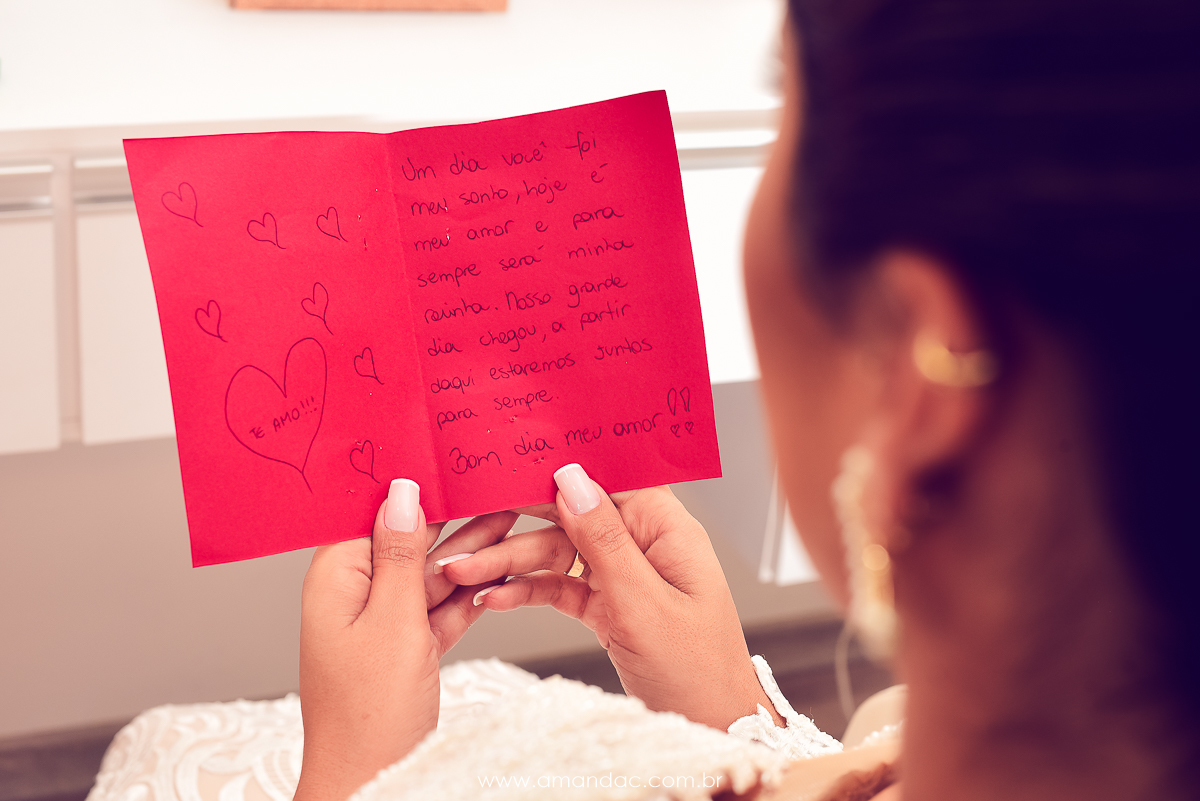 TE AMO!!!
Um dia você foi
meu sonho, hoje é
meu amor e para
sempre será minha
rainha. Nosso grande
dia chegou, a partir
daqui estaremos juntos
para sempre.
Bom dia meu amor!!
www.amandac.com.br